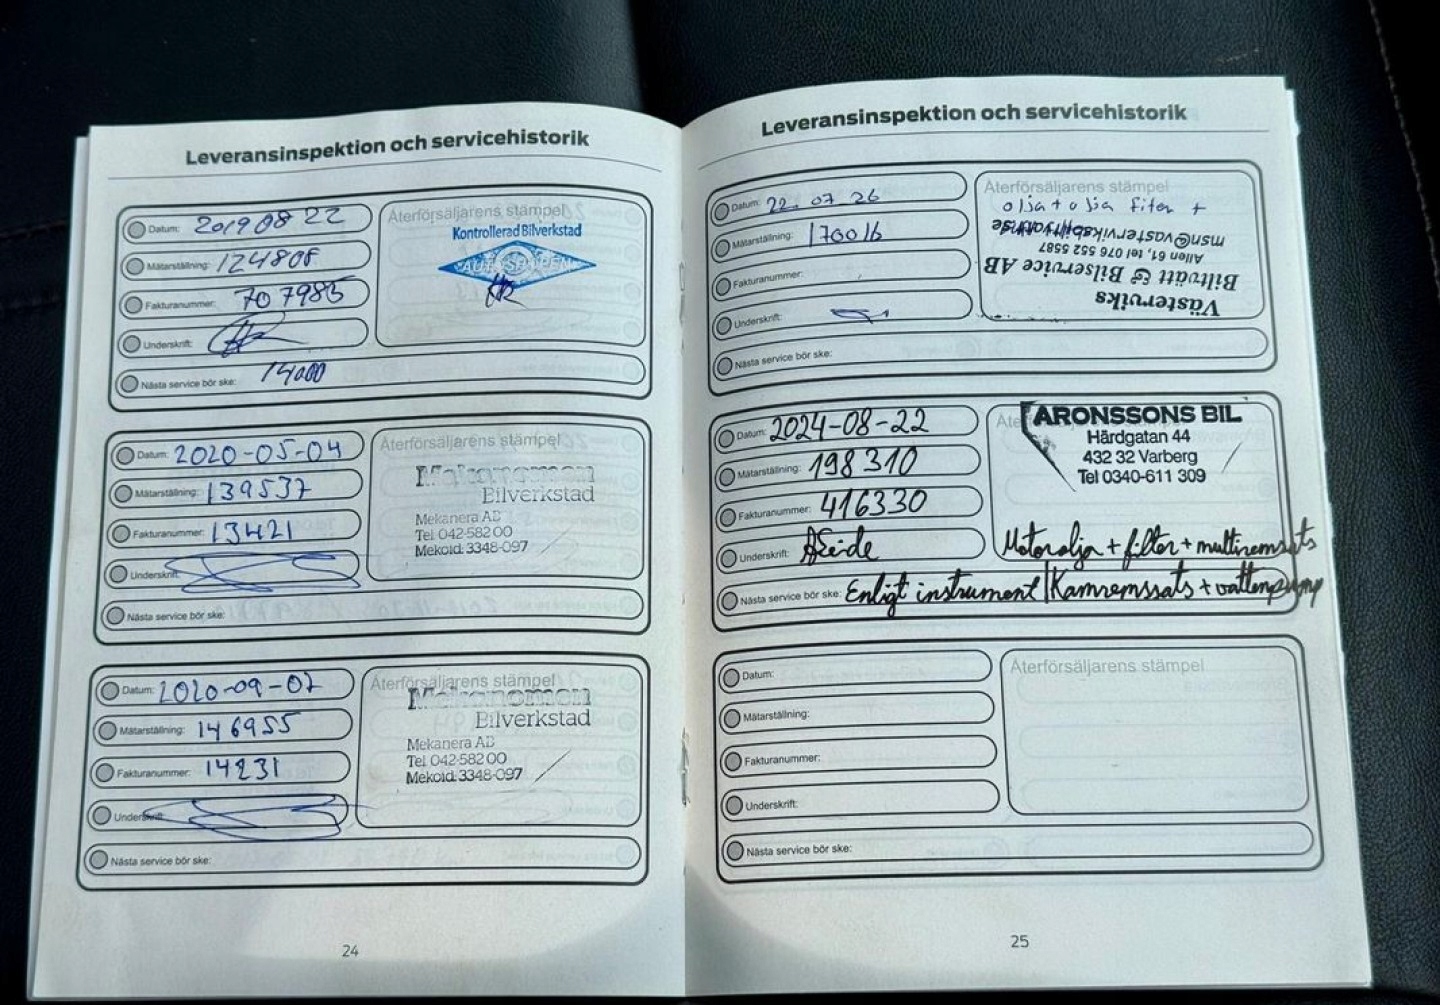 Leveransinspektion och servicehistorik
Datum: 2019 08 22
Mätarställning: 124808
Fakturanummer: 707985
Underskrift:
Nästa service bör ske: 14000
Återförsäljarens stämpel
Kontrollerad Bilverkstad
Datum: 2020-05-04
Mätarställning: 139537
Fakturanummer: 13421
Underskrift:
Nästa service bör ske:
Återförsäljarens stämpel
Mekonomen
Bilverkstad
Mekanera AB
Tel. 042-582 00
Mekoid: 3348-097
Datum: 2020-09-07
Mätarställning: 146955
Fakturanummer: 14231
Underskrift:
Nästa service bör ske:
Återförsäljarens stämpel
Mekonomen
Bilverkstad
Mekanera AB
Tel. 042-582 00
Mekoid: 3348-097
24
Leveransinspektion och servicehistorik
Datum: 22 07 26
Mätarställning: 170016
Fakturanummer:
Underskrift:
Nästa service bör ske:
Återförsäljarens stämpel
olja + olja filter +
Västerviks
Biltvätt & Bilservice AB
Allen 61, tel 076 552 5587
Datum: 2024-08-22
Mätarställning: 198310
Fakturanummer: 416330
Underskrift:
Nästa service bör ske: Enligt instrument
ARONSSONS BIL
Hårdgatan 44
432 32 Varberg
Tel 0340-611 309
Motorolja + filter + multiremsats
Kamremssats + vattenpump
Datum:
Mätarställning:
Fakturanummer:
Underskrift:
Nästa service bör ske:
Återförsäljarens stämpel
25